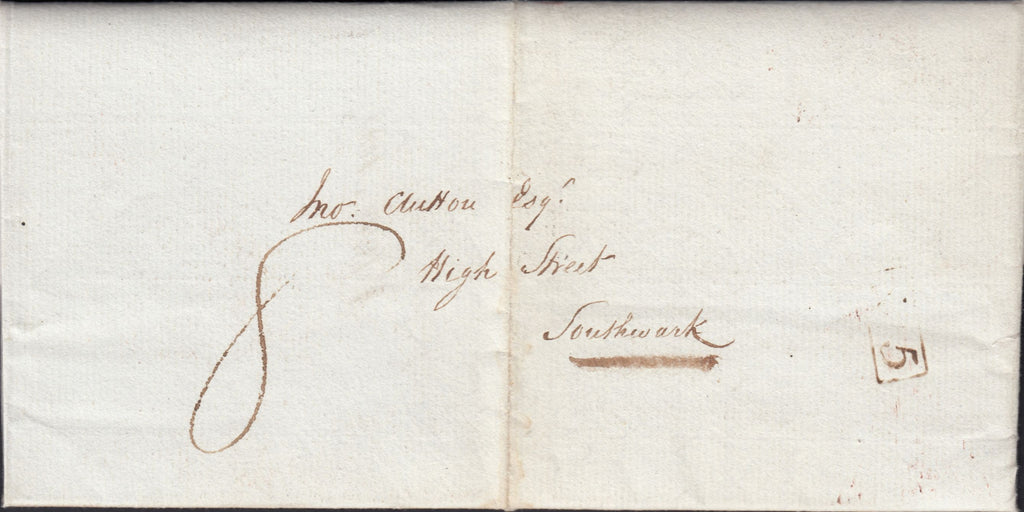 Jno. Clutton Esqr.
High Street
Southwark
8
5